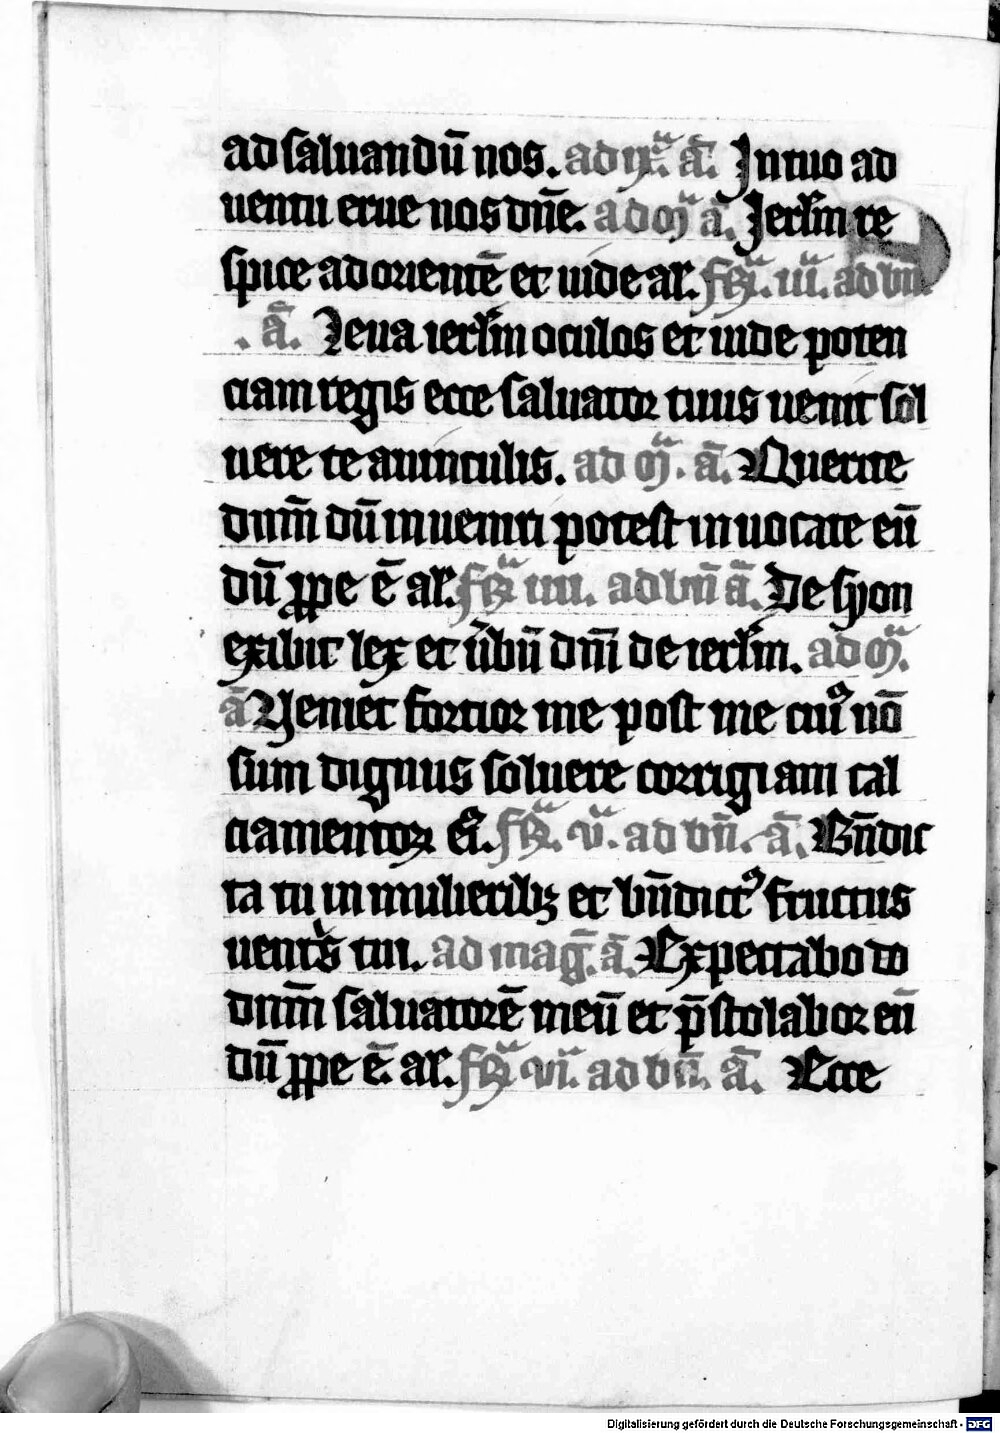 ad saluandū nos. ad ixᵃ. ā. In tuo ad
uentu erue nos dn̄e. ad mᵃ ā. Ierl̄m re
spice ad orientē et uide ał. fꝫᵃ. iii. ad bn̄
. ā. Leua ierl̄m oculos et uide poten
ciam regis ecce saluator tuus uenit sol
uere te a uinculis. ad mᵃ. ā. Querite
dnm̄ dū inueniri potest inuocate eū
dū ꝓpe ē ał. fꝫᵃ iiii. ad bn̄ ā. De syon
exibit lex et ủbū dn̄i de ierl̄m. ad mᵃ.
ā Ueniet fortior me post me cuiꝰ nō
sum dignus soluere corrigiam cal
ciamentoꝝ ei̾. fꝫᵃ. vᵃ. ad bn̄. ā. Bn̄dic
ta tu in mulieribꝫ et bn̄dictꝰ fructus
uentr̾s tui. ad maḡ. ā. Expectabo do
dnm̄ saluatorē meū et p̄stolabor eū
dū ꝓpe ē. ał. fꝫᵃ vi. ad bn̄. ā. Ecce
Digitalisierung gefördert durch die Deutsche Forschungsgemeinschaft - DFG